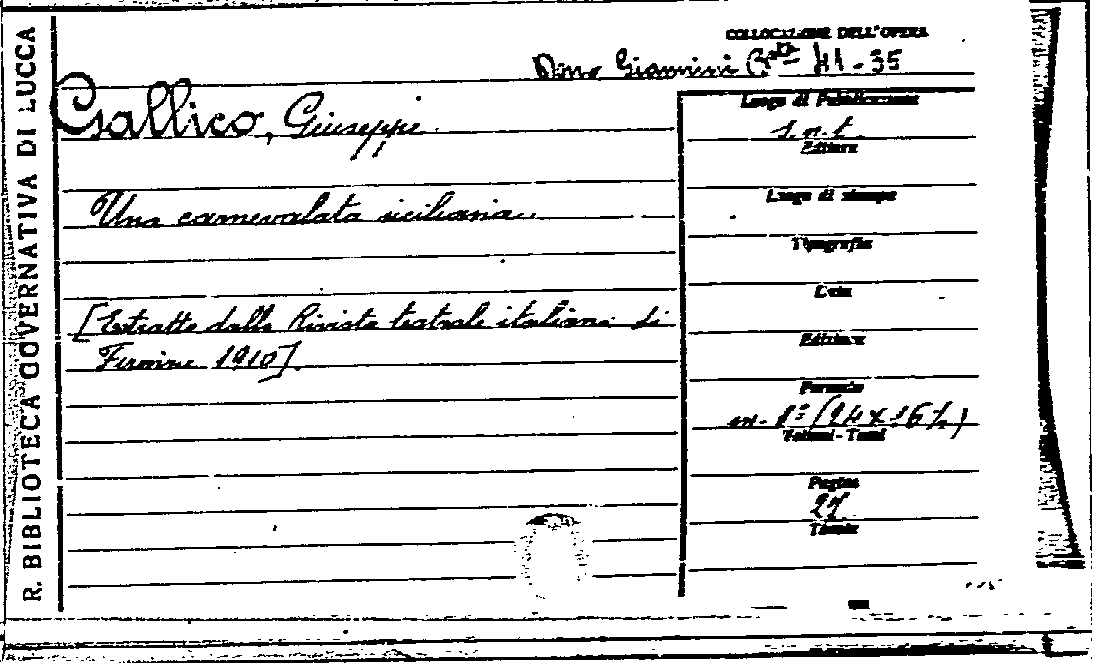 R. BIBLIOTECA GOVERNATIVA DI LUCCA
COLLOCAZIONE DELL'OPERA
Dono Giannini 41-35
Gallico, Giuseppe
Una carnevalata siciliana.
[Estratto dalla Rivista teatrale italiana di
Firenze 1910]
Luogo di Pubblicazione
s.n.t.
Editore
Luogo di stampa
Tipografia
Data
Edizione
Formato
in-8º (24 x 16½)
Volumi - Tomi
Pagine
27
Tavole